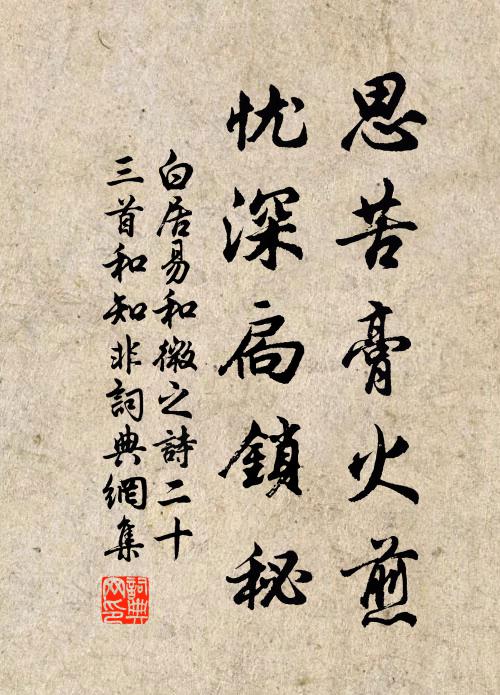 思苦膏火煎
忧深扃鎖秘
白居易和微之詩二十
三首和知非詞典網集